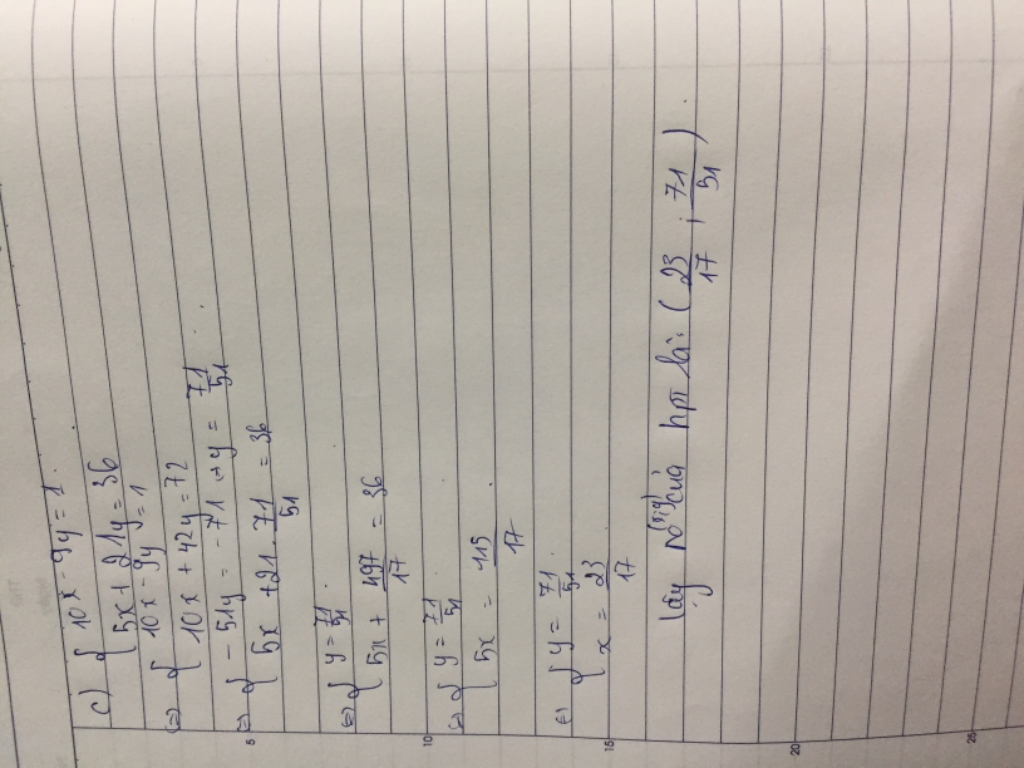 c) { 10x - 9y = 1
5x + 21y = 36
(=) { 10x - 9y = 1
10x + 42y = 72
(=) { -51y = -71 (=) y = 71/51
5x + 21 . 71/51 = 36
(=) { y = 71/51
5x + 497/17 = 36
(=) { y = 71/51
5x = 115/17
(=) { y = 71/51
x = 23/17
Vậy no của hpt là: ( 23/17 ; 71/51 )
5
10
15
20
25